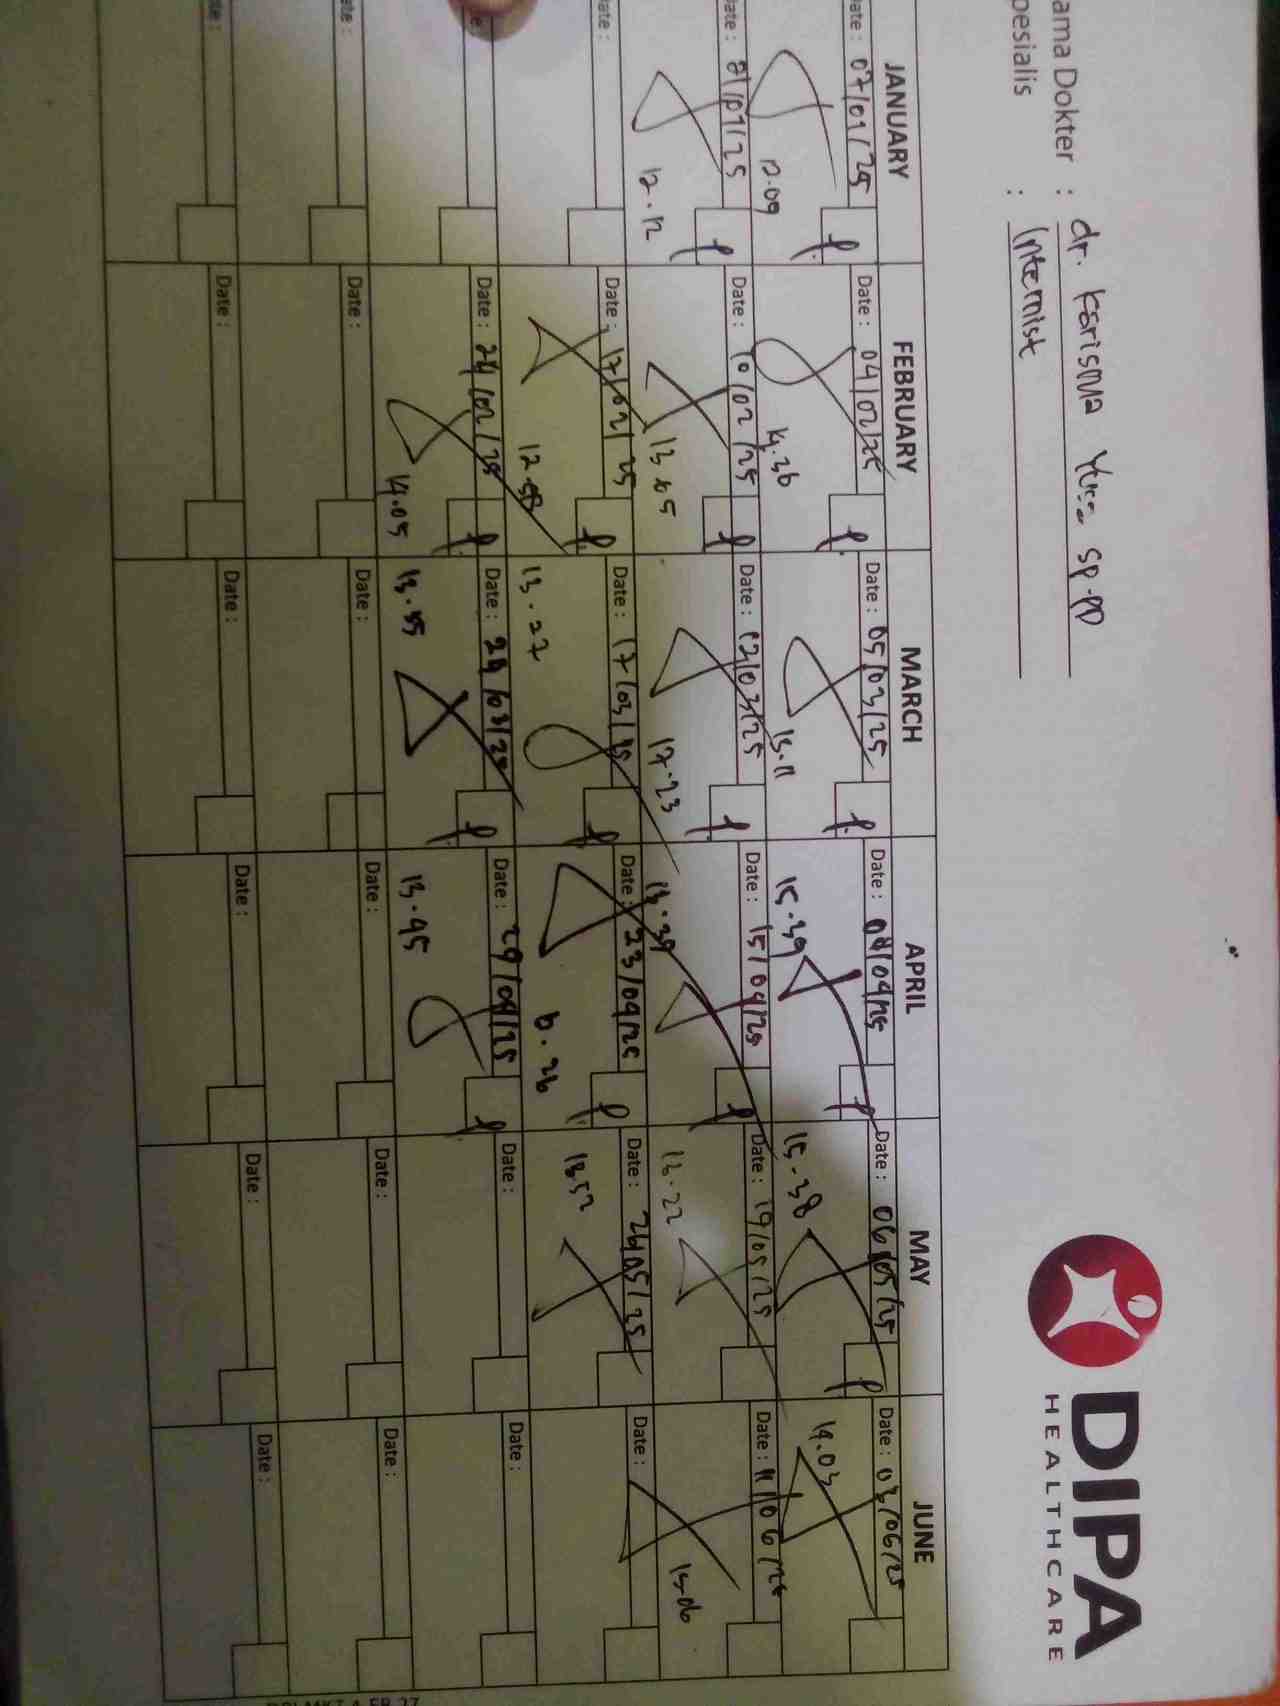 DIPA
HEALTHCARE
ama Dokter : dr. Karisma Sp.PD
pesialis : Internist
JANUARY FEBRUARY MARCH APRIL MAY JUNE
ate : 07/01/25 Date : 04/02/25 Date : 05/03/25 Date : 08/04/25 Date : 06/05/25 Date : 03/06/25
12.09 14.36 15.11 15.39 15.38 14.03
ate : 21/01/25 Date : 10/02/25 Date : 12/03/25 Date : 15/04/25 Date : 19/05/25 Date : 11/06/25
12.12 13.05 17.23 13.39 13.22 15.06
ate : Date : 17/02/25 Date : 17/03/25 Date : 23/04/25 Date : 26/05/25 Date :
12.58 13.27 13.52
e Date : 24/02/25 Date : 24/03/25 Date : 29/04/25 Date : Date :
14.05 13.35 13.45
ate : Date : Date : Date : Date : Date :
e : Date : Date : Date : Date : Date :